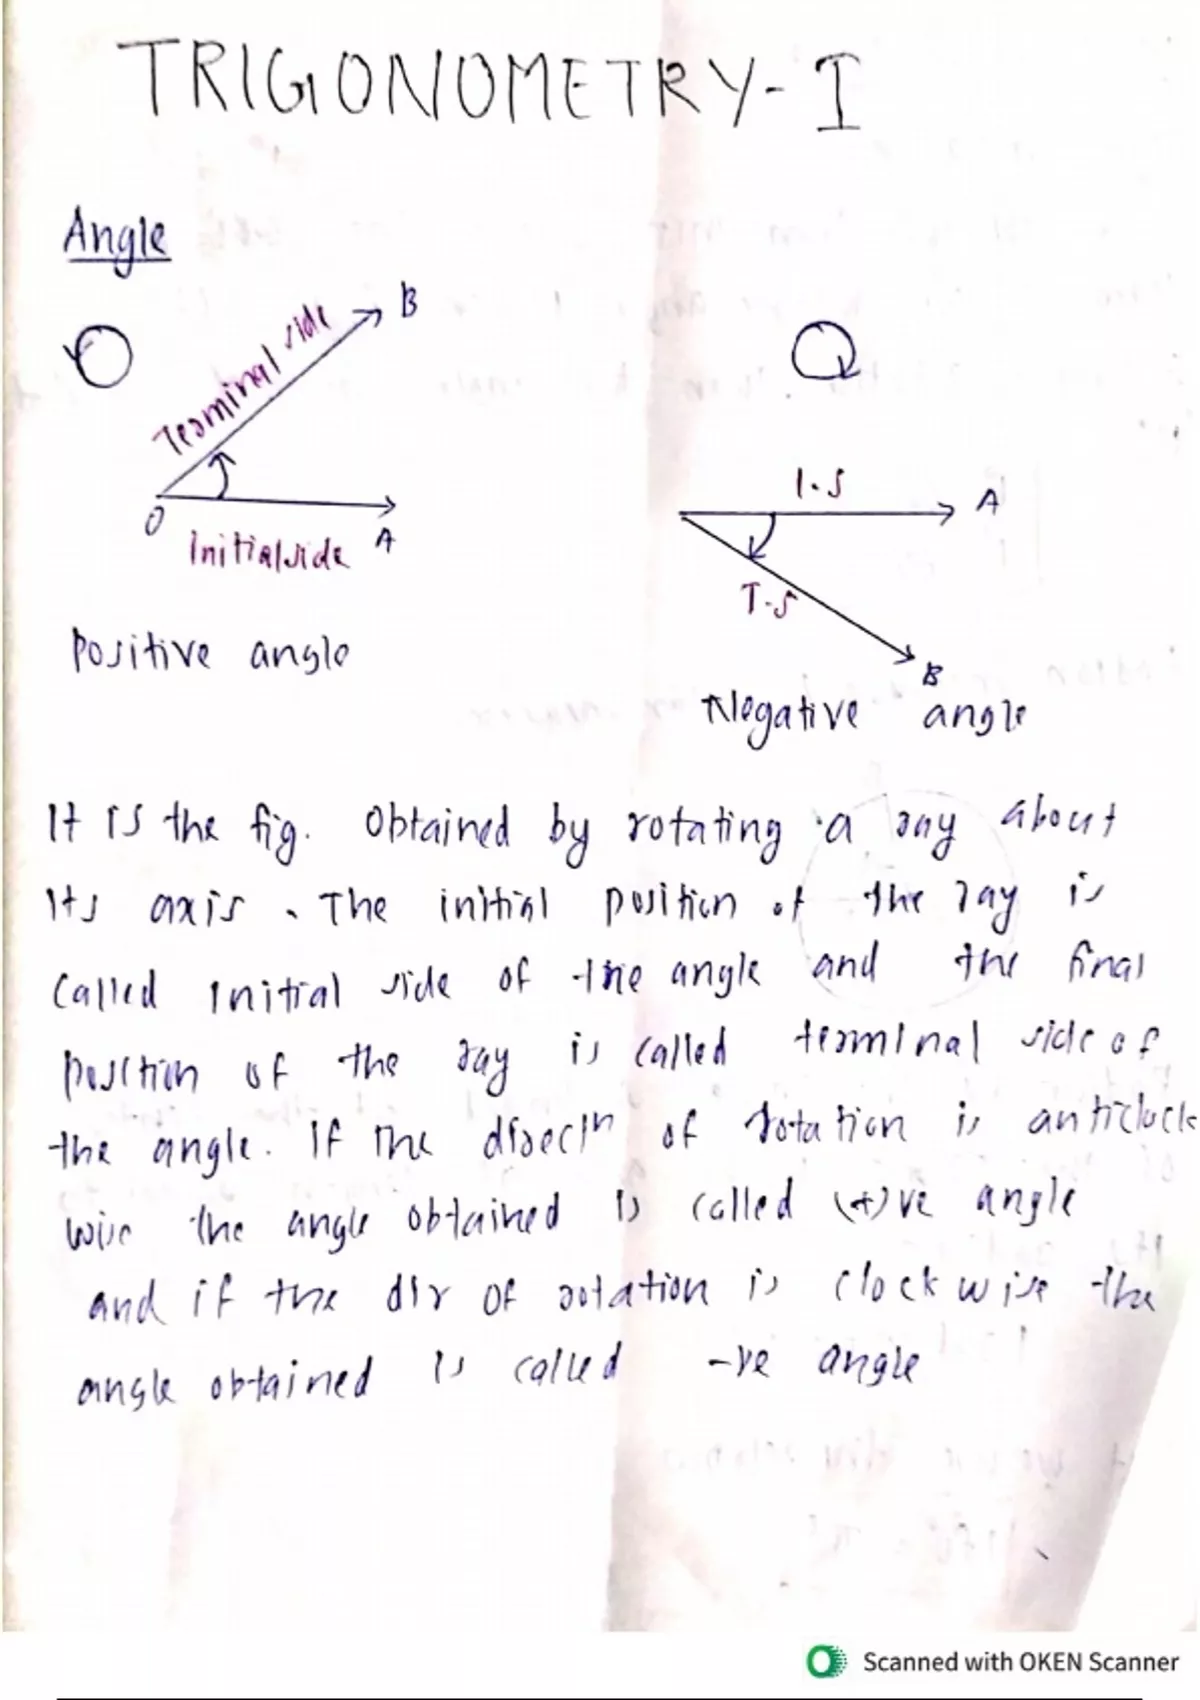 TRIGONOMETRY-I
Angle
Terminal side
B
O
Initial side
A
Positive angle
I.S
A
T.S
B
Negative angle
It is the fig. obtained by rotating a ray about
its axis. The initial position of the ray is
called initial side of the angle and the final
position of the ray is called terminal side of
the angle. If the direcⁿ of rotation is anticlock
wise the angle obtained is called (+)ve angle
and if the dir of rotation is clockwise the
angle obtained is called -ve angle
Scanned with OKEN Scanner